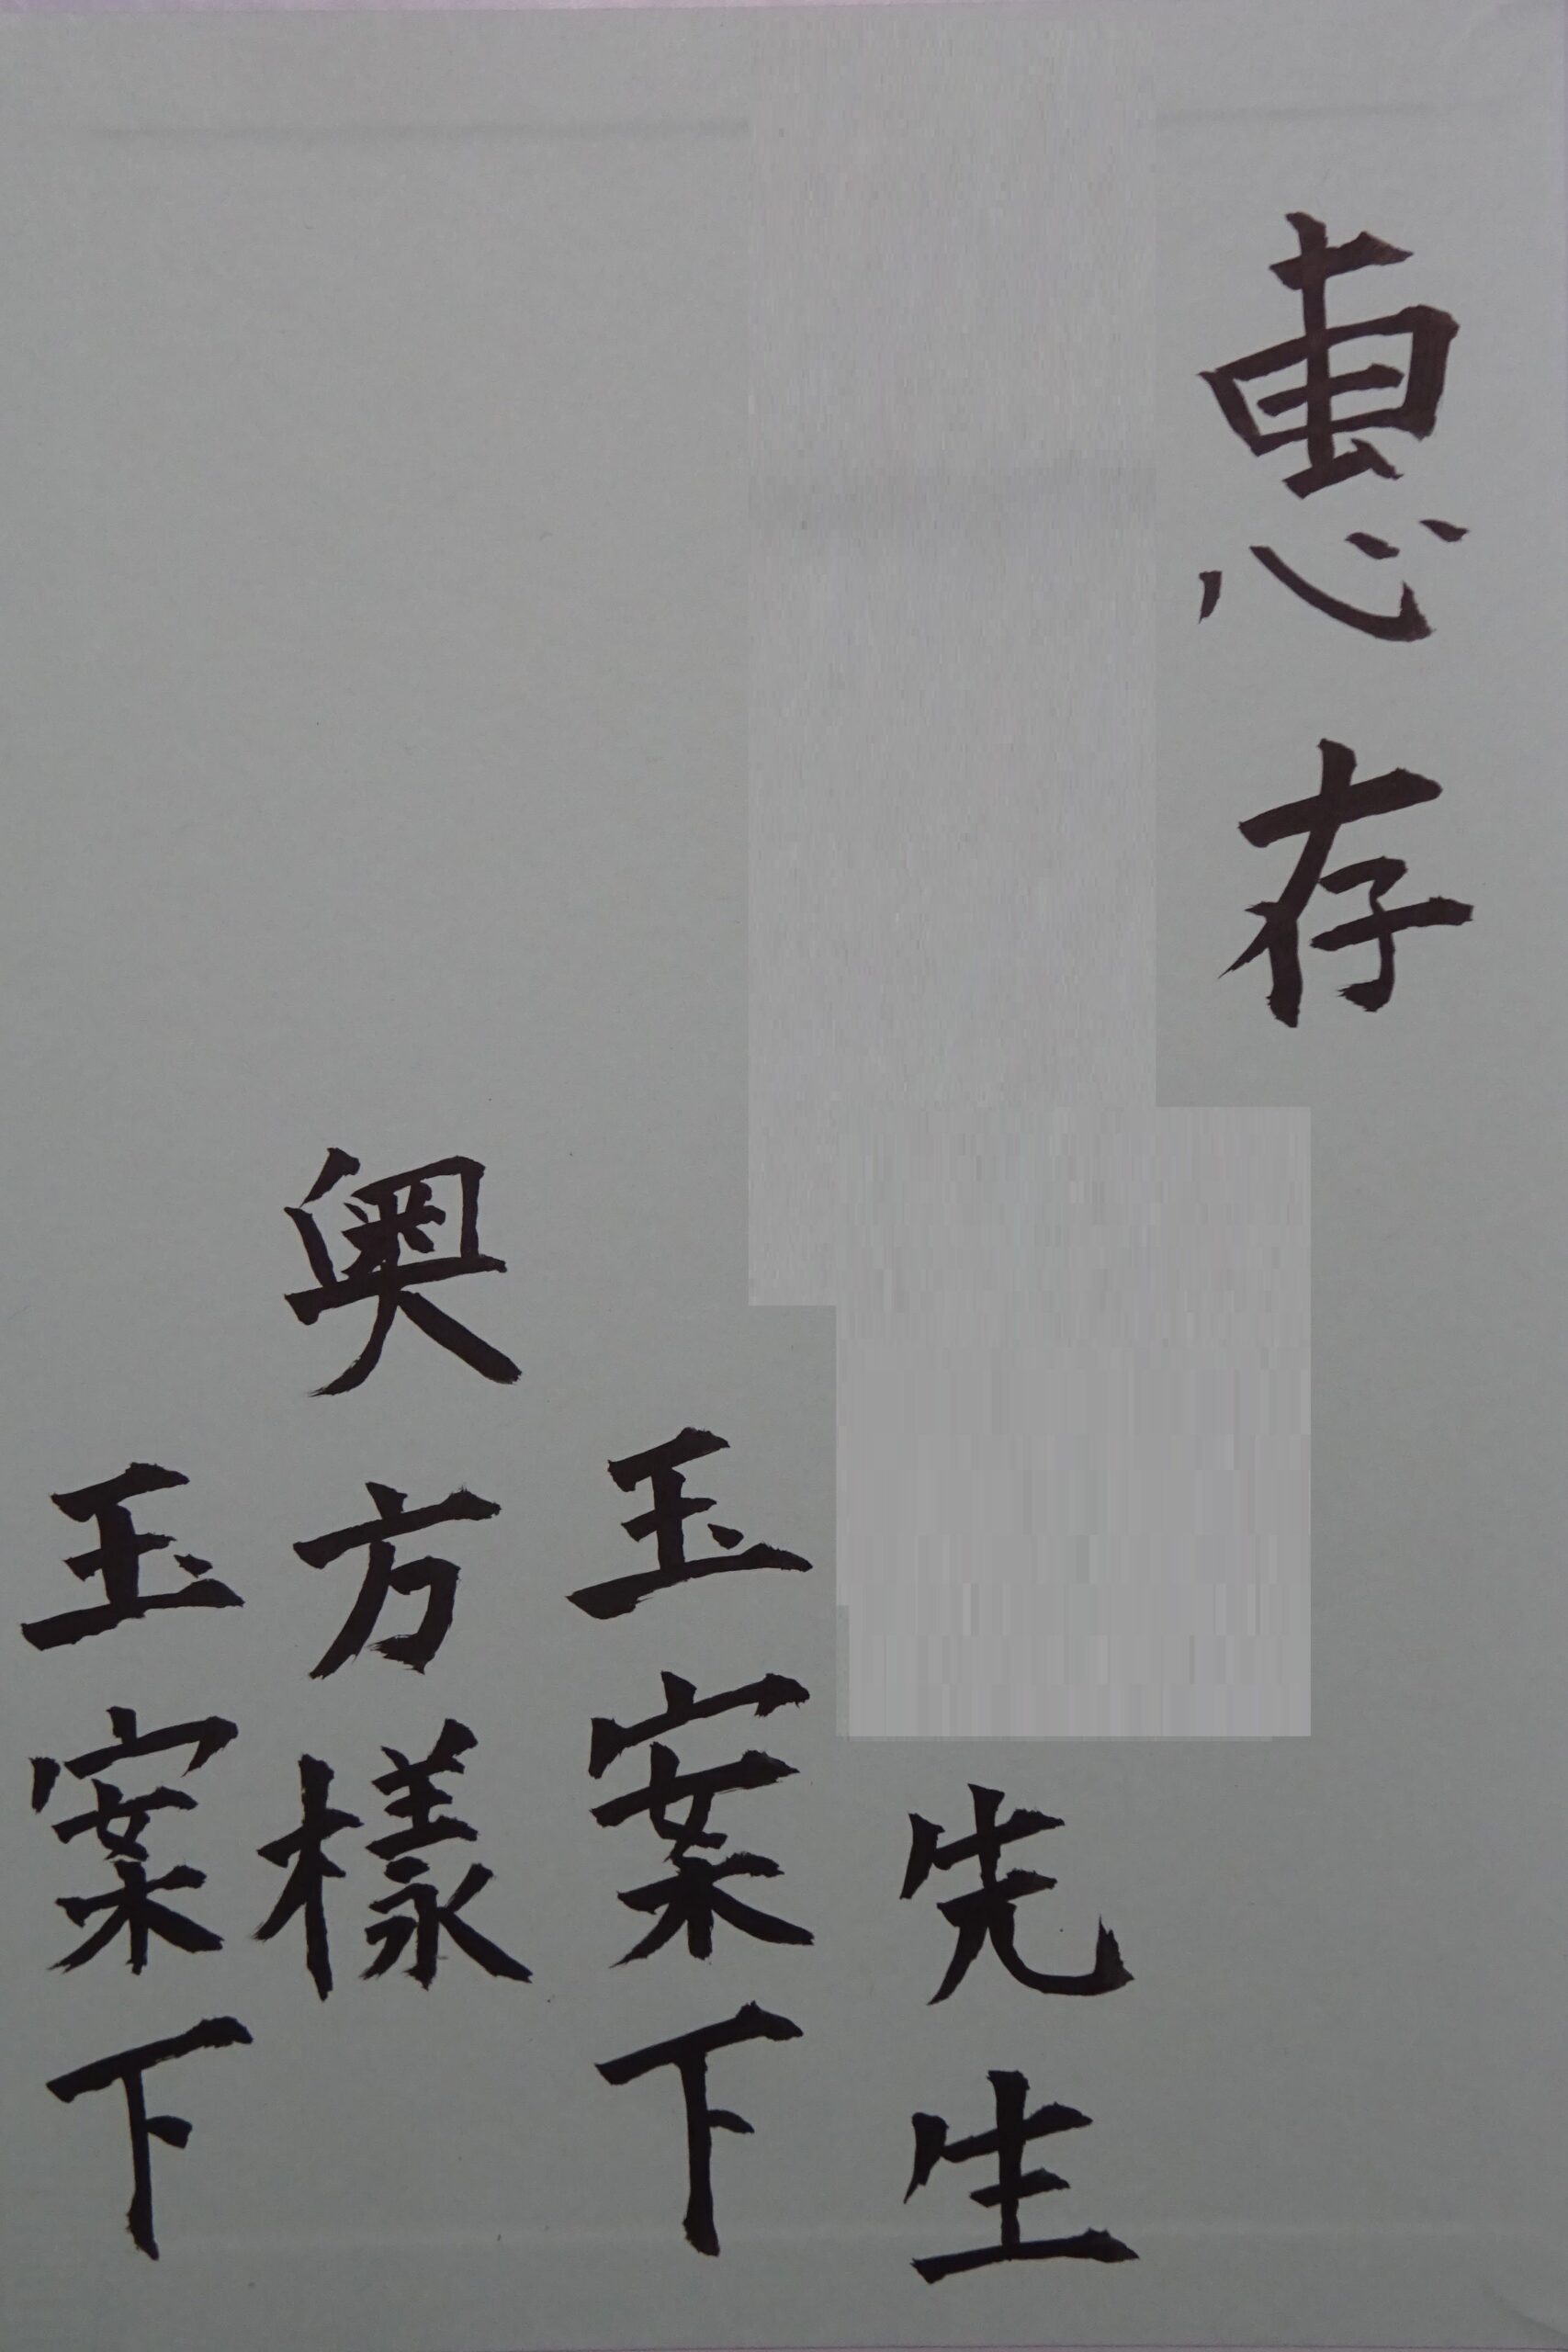 惠存
先生
玉案下
奥方樣
玉案下